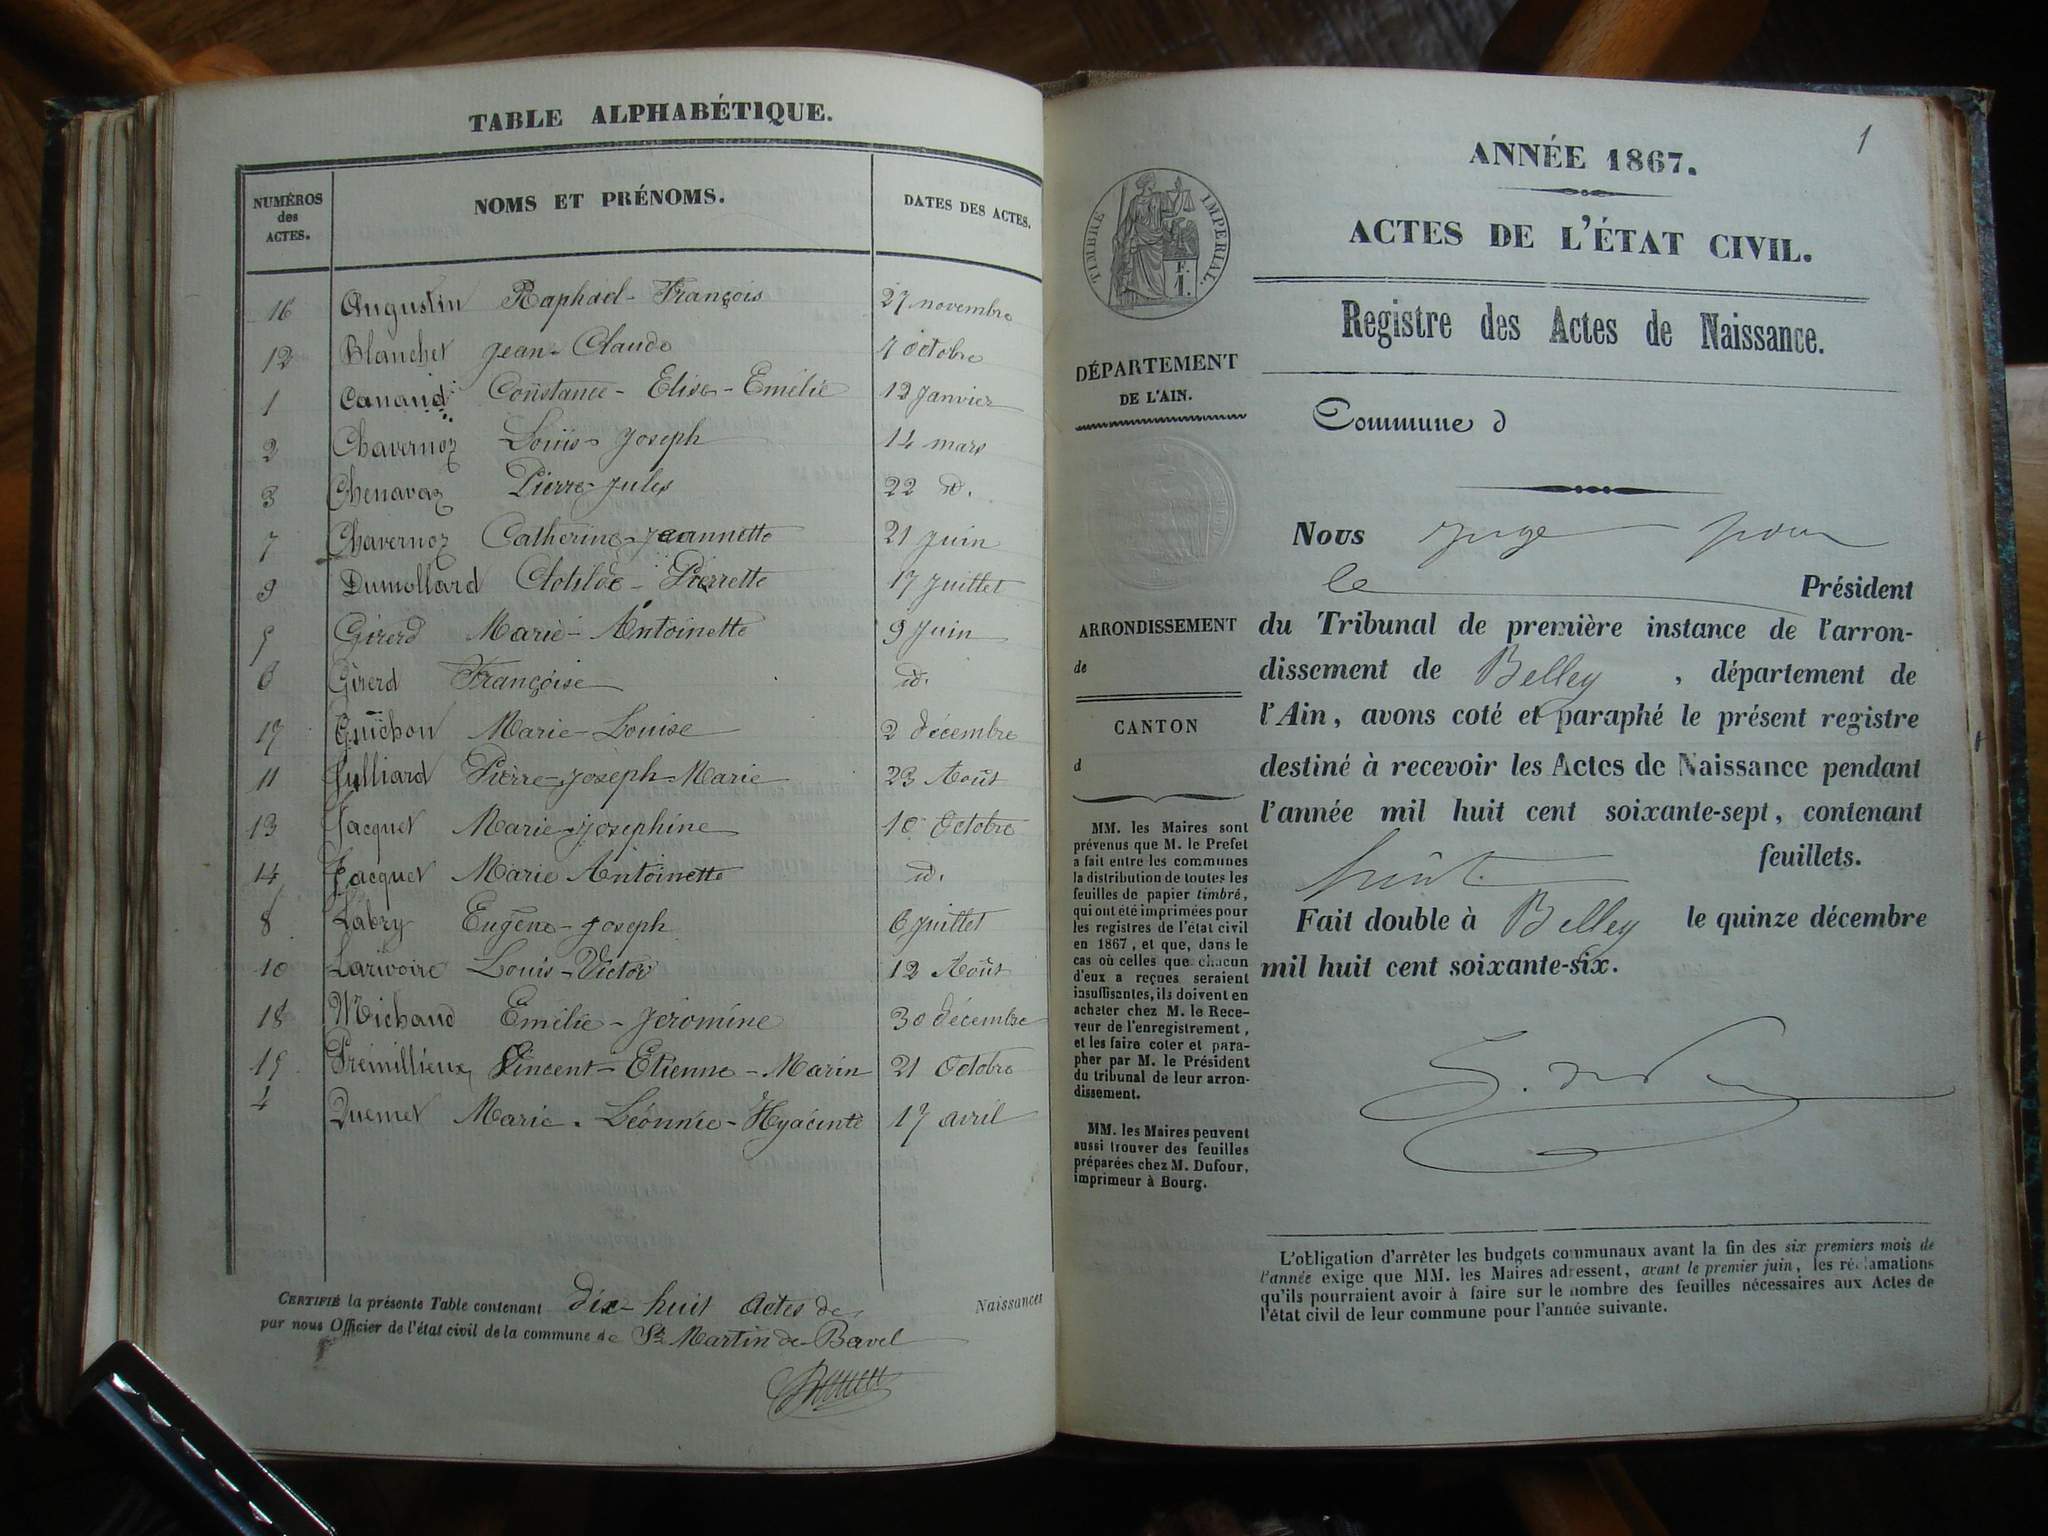 TABLE ALPHABÉTIQUE.
NUMÉROS des ACTES. NOMS ET PRÉNOMS. DATES DES ACTES.
16 Augustin Raphaël-François 27 novembre
12 Blanchet Jean-Claude 7 octobre
1 Canaud Constance-Elise-Emélie 12 Janvier
2 Chavernoz Louis-Joseph 14 mars
3 Chenavaz Pierre-Jules 22 id.
7 Chavernoz Catherine-Jeannette 21 Juin
9 Dumollard Clotilde-Pierrette 17 Juillet
5 Girerd Marie-Antoinette 9 Juin
6 Girerd Françoise id.
17 Guichon Marie-Louise 2 décembre
11 Julliard Pierre-Joseph-Marie 23 Août
13 Jacquet Marie-Josephine 10 Octobre
14 Jacquet Marie Antoinette id.
8 Labry Eugène-Joseph 6 Juillet
10 Larivoire Louis-Victor 12 Août
18 Michaud Emélie-Jéromine 30 décembre
15 Preinillieux Vincent-Etienne-Marin 21 Octobre
4 Quemet Marie-Léonnie-Hyacinte 17 avril
CERTIFIÉ la présente Table contenant dix-huit actes de Naissances
par nous Officier de l'état civil de la commune de St Martin de Bavel
1
ANNÉE 1867.
ACTES DE L'ÉTAT CIVIL.
TIMBRE IMPERIAL.
F. 1.
Registre des Actes de Naissance.
DÉPARTEMENT
DE L'AIN.
Commune d
Nous juge pour
le Président
ARRONDISSEMENT
de
CANTON
d
du Tribunal de première instance de l'arron-
dissement de Belley, département de
l'Ain, avons coté et paraphé le présent registre
destiné à recevoir les Actes de Naissance pendant
l'année mil huit cent soixante-sept, contenant
huit feuillets.
Fait double à Belley le quinze décembre
mil huit cent soixante-six.
MM. les Maires sont
prévenus que M. le Prefet
a fait entre les communes
la distribution de toutes les
feuilles de papier timbré,
qui ont été imprimées pour
les registres de l'état civil
en 1867, et que, dans le
cas où celles que chacun
d'eux a reçues seraient
insuffisantes, ils doivent en
acheter chez M. le Rece-
veur de l'enregistrement,
et les faire coter et para-
pher par M. le Président
du tribunal de leur arron-
dissement.
MM. les Maires peuvent
aussi trouver des feuilles
préparées chez M. Dufour,
imprimeur à Bourg.
L'obligation d'arrêter les budgets communaux avant la fin des six premiers mois de
l'année exige que MM. les Maires adressent, avant le premier juin, les réclamations
qu'ils pourraient avoir à faire sur le nombre des feuilles nécessaires aux Actes de
l'état civil de leur commune pour l'année suivante.